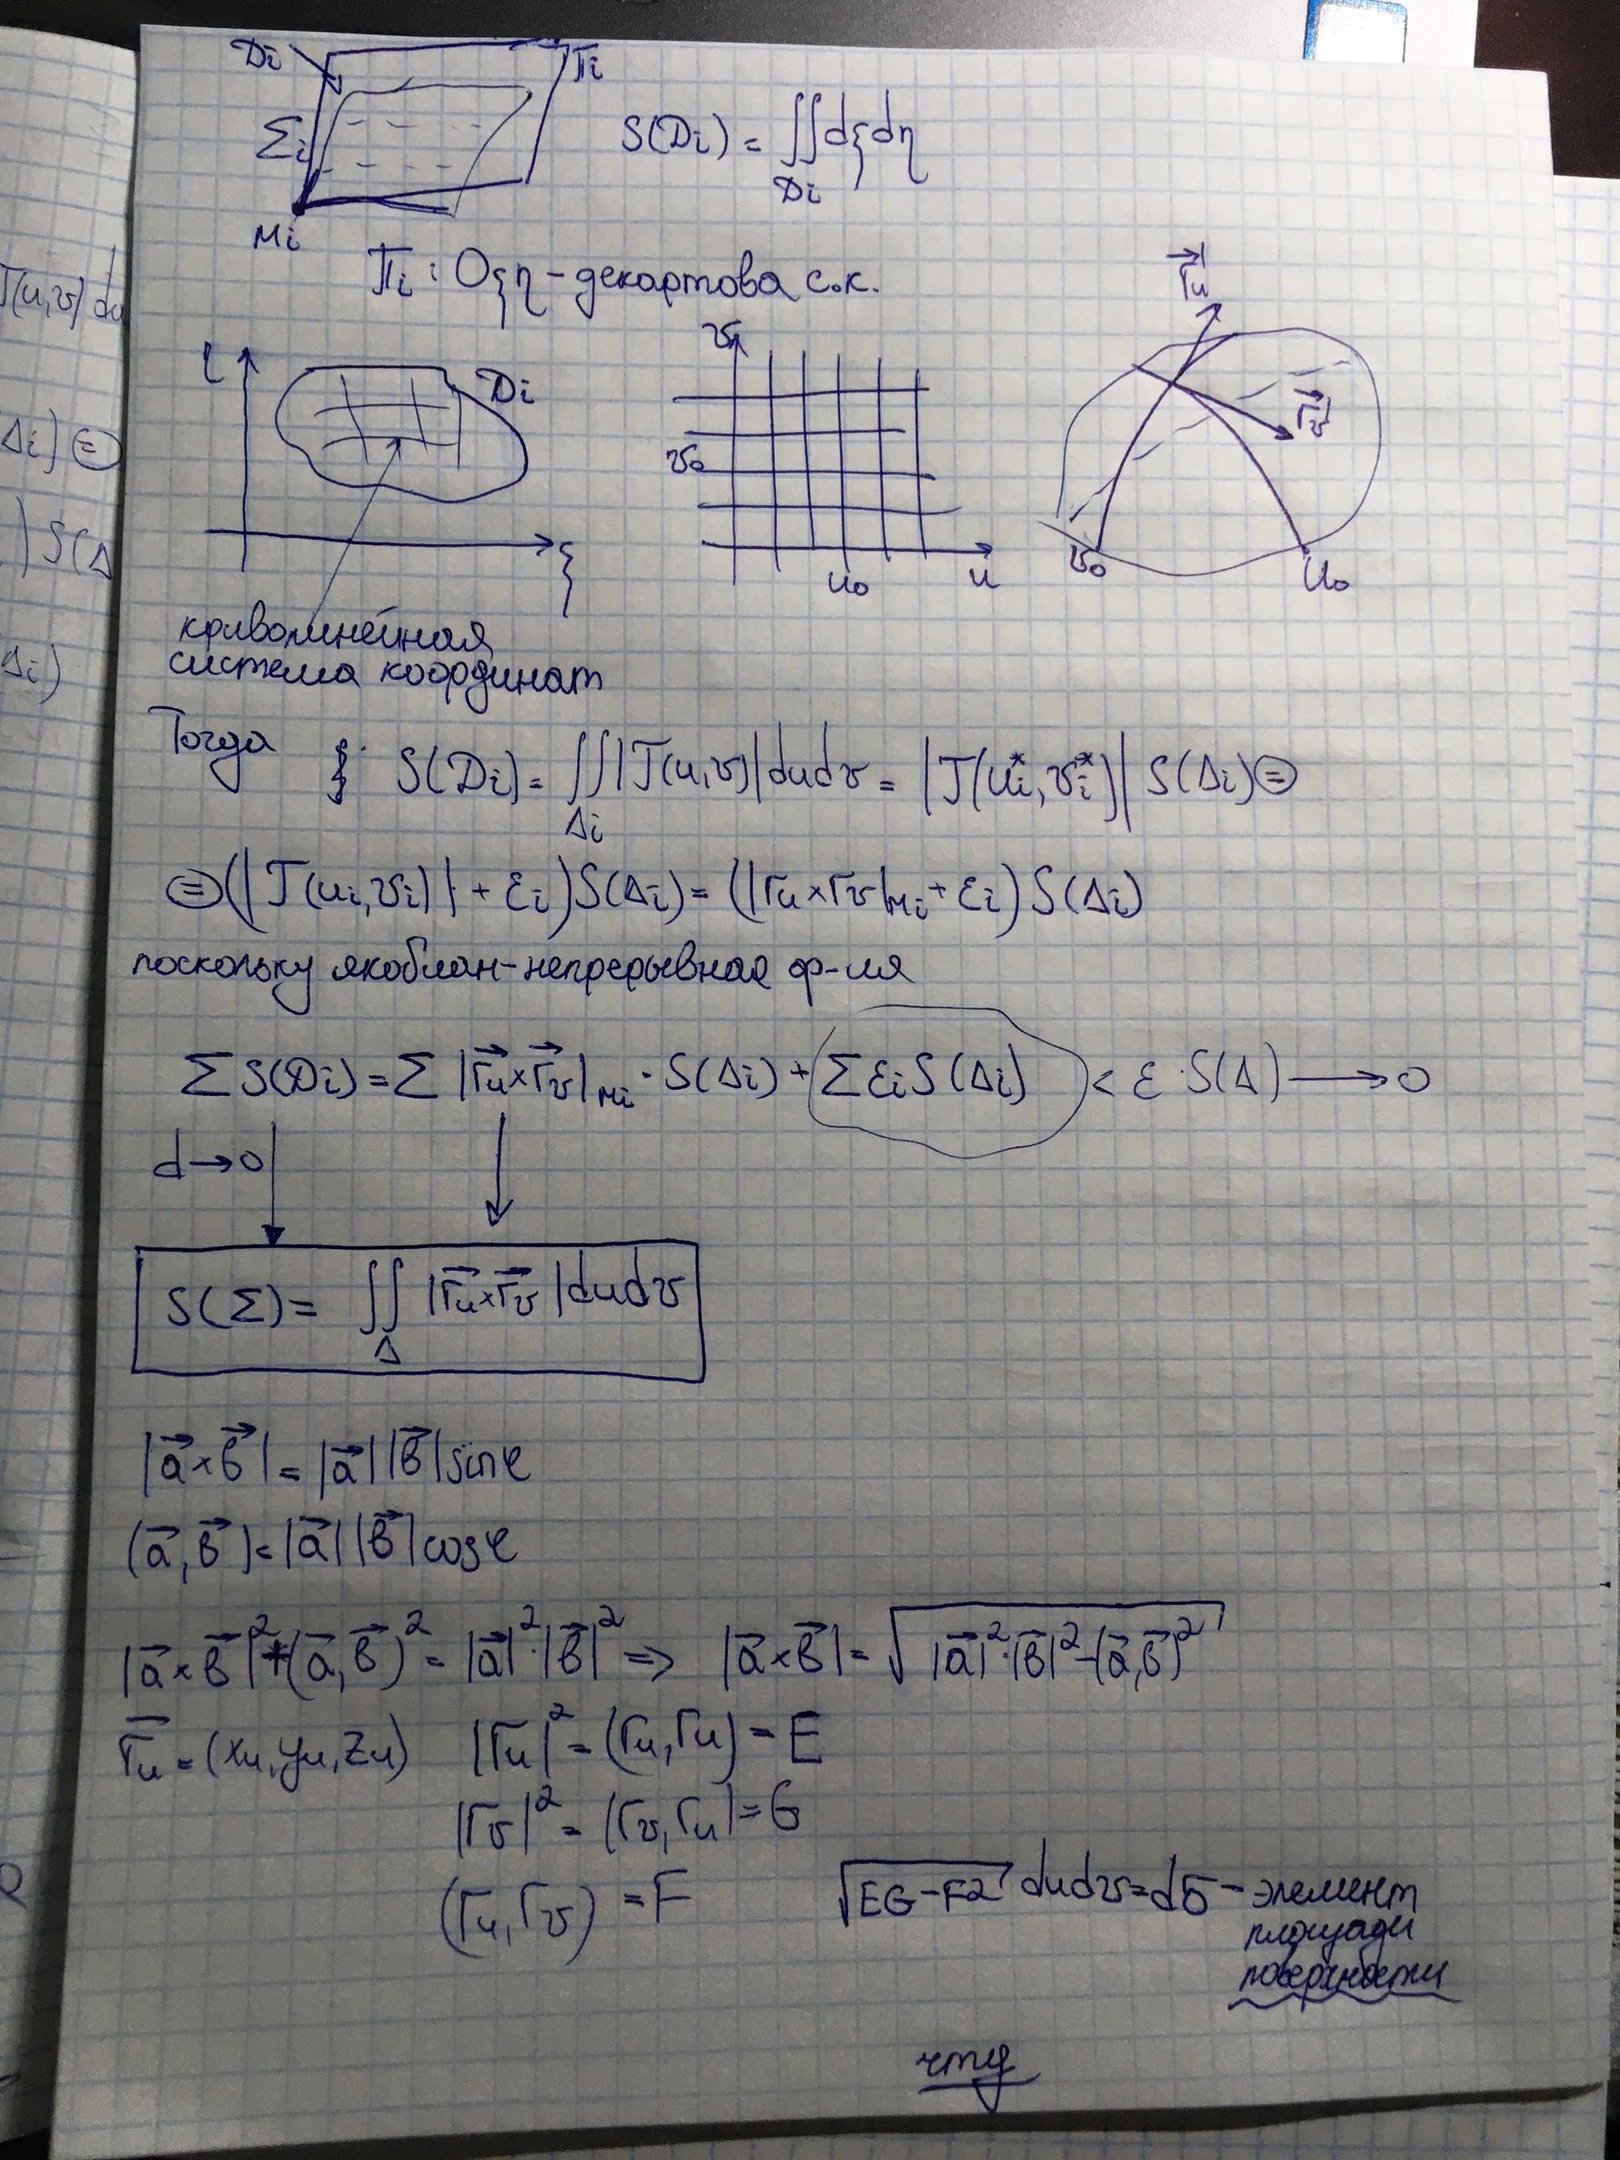 Di Пi
Σi
S(Di) = ∬ dξdη
Di
Mi
Пi: Oξη - декартова с.к.
Di
v
v₀
u₀ u
r⃗u
r⃗v
v₀ u₀
ξ
криволинейная
система координат
Тогда S(Di) = ∬ |J(u,v)| dudv = |J(ui*, vi*)| S(Δi) ⊜
Δi
⊜ (|J(ui,vi)| + εi) S(Δi) = (|ru×rv|Mi + εi) S(Δi)
поскольку якобиан-непрерывная ф-ия
Σ S(Di) = Σ |r⃗u×r⃗v|Mi · S(Δi) + Σ εi S(Δi) < ε·S(Δ) → 0
d→0
S(Σ) = ∬ |r⃗u×r⃗v| dudv
Δ
|a⃗×b⃗| = |a⃗||b⃗| sinφ
(a⃗,b⃗) = |a⃗||b⃗| cosφ
|a⃗×b⃗|² + (a⃗,b⃗)² = |a⃗|²·|b⃗|² => |a⃗×b⃗| = √(|a⃗|²·|b⃗|² - (a⃗,b⃗)²)
r̅u = (xu, yu, zu) |ru|² = (ru, ru) = E
|rv|² = (rv, ru) = G
(ru, rv) = F
√(EG - F2) dudv = dσ - элемент
площади
поверхности
чтд
J(u,v) du
Δi) ⊜
) S(Δ
Δi)